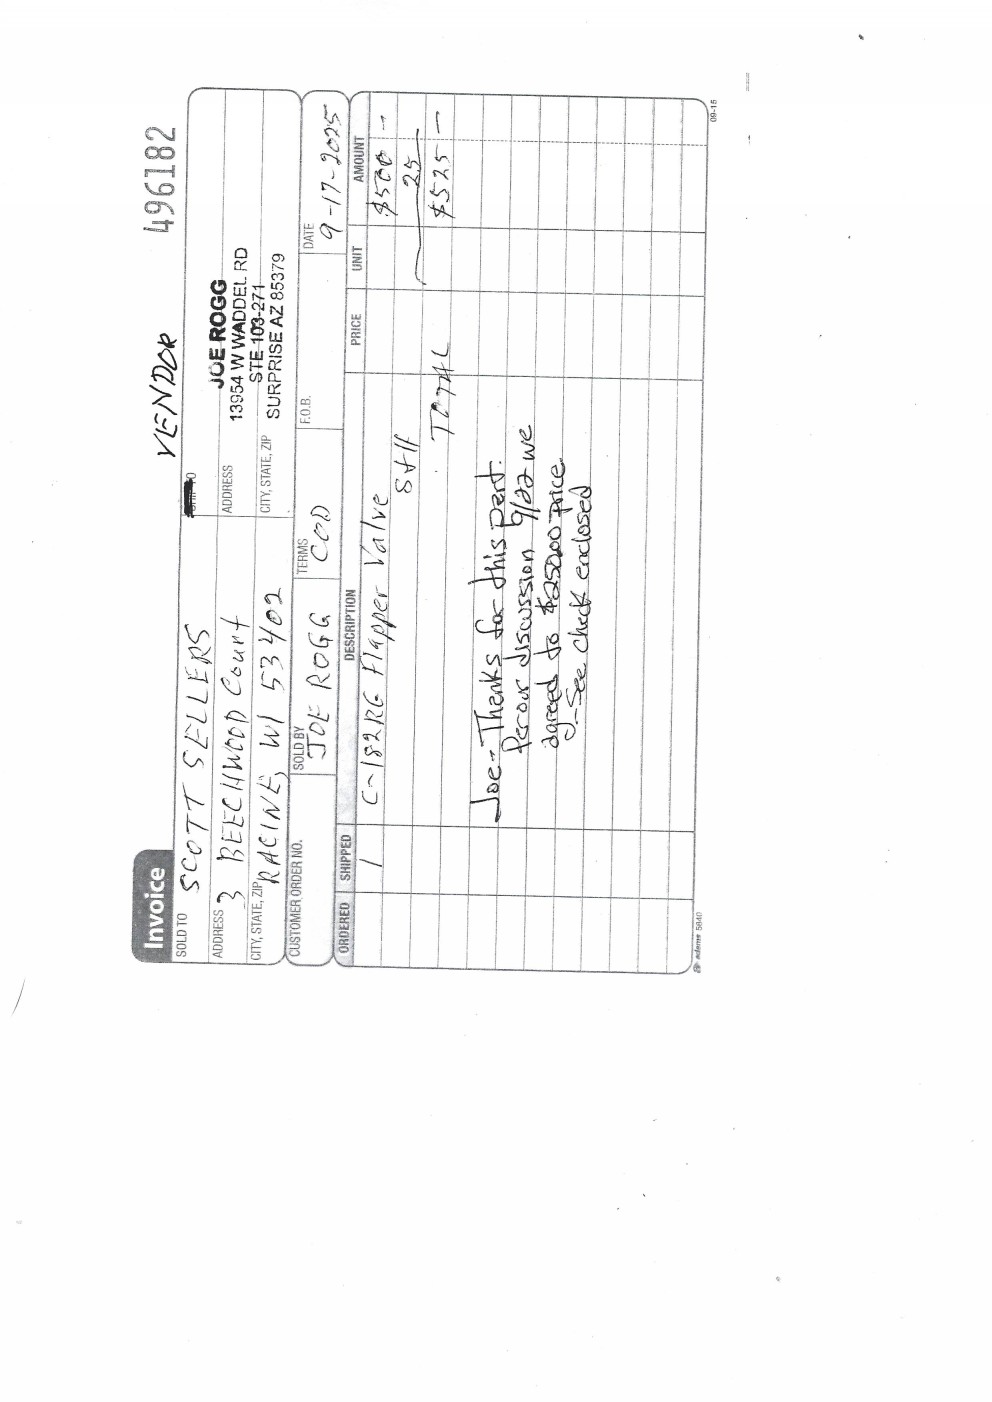 Invoice
496182
VENDOR
SOLD TO
SCOTT SELLERS
ADDRESS
3 BEECHWOOD Court
CITY, STATE, ZIP
RACINE, WI 53402
JOE ROGG
ADDRESS
13954 W WADDEL RD
STE 103-271
CITY, STATE, ZIP
SURPRISE AZ 85379
CUSTOMER ORDER NO.
SOLD BY
JOE ROGG
TERMS
COD
F.O.B.
DATE
9-17-2025
ORDERED SHIPPED DESCRIPTION PRICE UNIT AMOUNT
1 C-182RG Flapper Valve $500 -
S+H 25
TOTAL $525 -
Joe - Thanks for this part.
Per our discussion 9/22 we
agreed to $250.00 price
- See check enclosed
adams 5840
09-15